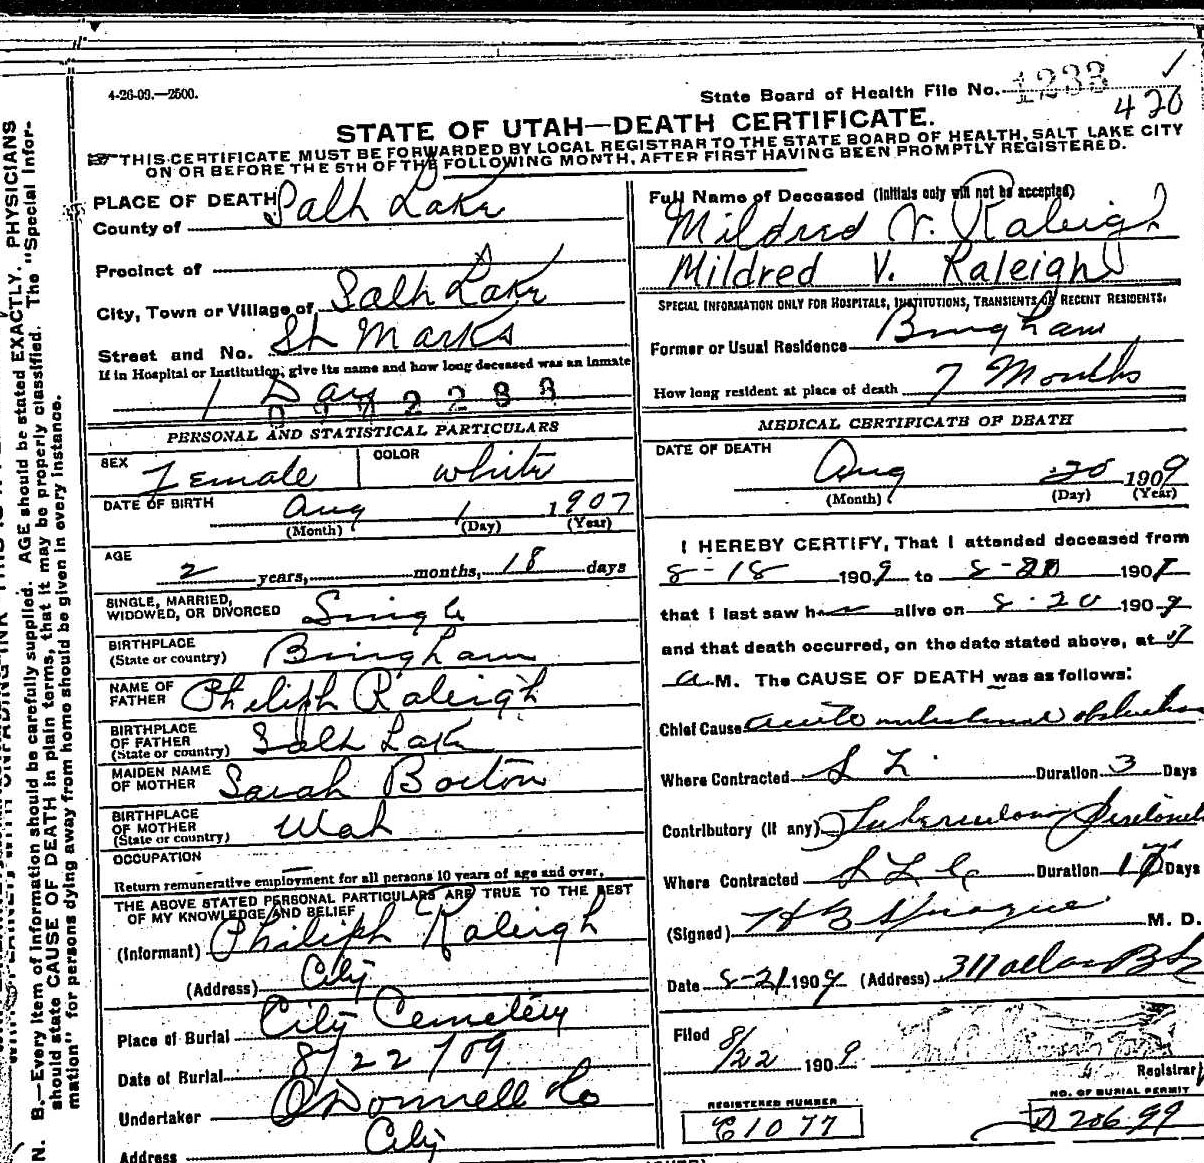 4-26-09.—2500.
State Board of Health File No. 1233
420
STATE OF UTAH—DEATH CERTIFICATE.
THIS CERTIFICATE MUST BE FORWARDED BY LOCAL REGISTRAR TO THE STATE BOARD OF HEALTH, SALT LAKE CITY
ON OR BEFORE THE 5TH OF THE FOLLOWING MONTH, AFTER FIRST HAVING BEEN PROMPTLY REGISTERED.
PLACE OF DEATH
County of Salt Lake
Precinct of
City, Town or Village of Salt Lake
Street and No. St Marks
If in Hospital or Institution, give its name and how long deceased was an inmate
1 Day
2288
PERSONAL AND STATISTICAL PARTICULARS
SEX Female COLOR white
DATE OF BIRTH Aug 1 1907
(Month) (Day) (Year)
AGE
2 years, months, 18 days
SINGLE, MARRIED,
WIDOWED, OR DIVORCED Single
BIRTHPLACE
(State or country) Bingham
NAME OF
FATHER Philiph Raleigh
BIRTHPLACE
OF FATHER
(State or country) Salt Lake
MAIDEN NAME
OF MOTHER Sarah Borton
BIRTHPLACE
OF MOTHER
(State or country) Utah
OCCUPATION
Return remunerative employment for all persons 10 years of age and over.
THE ABOVE STATED PERSONAL PARTICULARS ARE TRUE TO THE BEST
OF MY KNOWLEDGE AND BELIEF
(Informant) Philiph Raleigh
(Address) City
Place of Burial City Cemetery
Date of Burial 8/22/09
Undertaker O'Donnell Co
Address City
Full Name of Deceased (Initials only will not be accepted)
Mildred V. Raleigh
Mildred V. Raleigh
SPECIAL INFORMATION ONLY FOR HOSPITALS, INSTITUTIONS, TRANSIENTS OR RECENT RESIDENTS.
Former or Usual Residence Bingham
How long resident at place of death 7 Months
MEDICAL CERTIFICATE OF DEATH
DATE OF DEATH
Aug 20 1909
(Month) (Day) (Year)
I HEREBY CERTIFY, That I attended deceased from
8-18 1909 to 8-20 1909
that I last saw h alive on 8-20 1909
and that death occurred, on the date stated above, at
a.M. The CAUSE OF DEATH was as follows:
Chief Cause acute intestinal obstruction
Where Contracted S L Duration 3 Days
Contributory (if any) Tubercular Peritonitis
Where Contracted S L C Duration 17 Days
(Signed) H B Sprague M. D.
Date 8-21 1909 (Address)
Filed 8/22 1909
Registrar
REGISTERED NUMBER
C1077
NO. OF BURIAL PERMIT
D 20699
N. B.—Every item of information should be carefully supplied. AGE should be stated EXACTLY. PHYSICIANS
should state CAUSE OF DEATH in plain terms, that it may be properly classified. The "Special Infor-
mation" for persons dying away from home should be given in every instance.